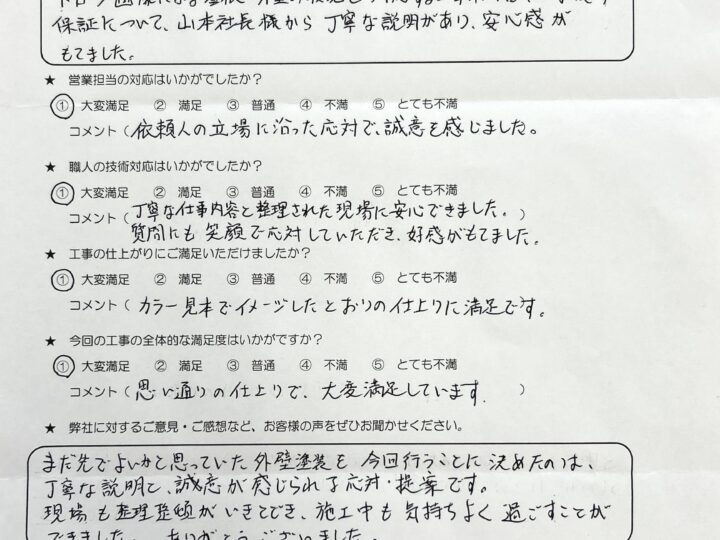 保証について、山本社長様から丁寧な説明があり、安心感が
もてました。
★ 営業担当の対応はいかがでしたか？
① 大変満足 ② 満足 ③ 普通 ④ 不満 ⑤ とても不満
コメント（依頼人の立場に沿った応対で、誠意を感じました。
★ 職人の技術対応はいかがでしたか？
① 大変満足 ② 満足 ③ 普通 ④ 不満 ⑤ とても不満
コメント（丁寧な仕事内容と整理された現場に安心できました。）
質問にも笑顔で応対していただき、好感がもてました。
★ 工事の仕上がりにご満足いただけましたか？
① 大変満足 ② 満足 ③ 普通 ④ 不満 ⑤ とても不満
コメント（カラー見本でイメージしたとおりの仕上りに満足です。
★ 今回の工事の全体的な満足度はいかがですか？
① 大変満足 ② 満足 ③ 普通 ④ 不満 ⑤ とても不満
コメント（思い通りの仕上りで、大変満足しています。）
★ 弊社に対するご意見・ご感想など、お客様の声をぜひお聞かせください。
まだ先でよいかと思っていた外壁塗装を今回行うことに決めたのは、
丁寧な説明と、誠意が感じられる応対・提案です。
現場も整理整頓がいきとどき、施工中も気持ちよく過ごすことが
できました。ありがとうございました。